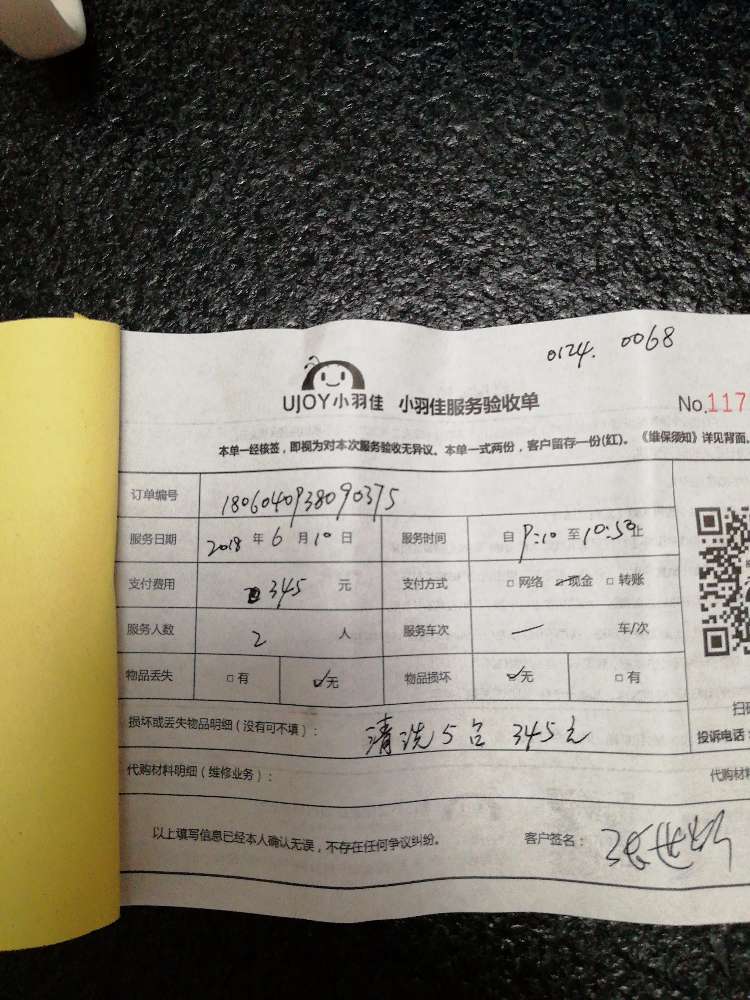 0124. 0068
UJOY小羽佳 小羽佳服务验收单
No.117
本单一经核签，即视为对本次服务验收无异议、本单一式两份，客户留存一份(红)。《维保须知》详见背面。
订单编号 1806040938090375
服务日期 2018 年 6 月 10 日 服务时间 自 9:10 至 10:50 止
支付费用 345 元 支付方式 □ 网络 ☑ 现金 □ 转账
服务人数 2 人 服务车次 一 车/次
物品丢失 □ 有 ☑ 无 物品损坏 ☑ 无 □ 有
扫
损坏或丢失物品明细（没有可不填）： 清洗5台 345元
投诉电话：
代购材料明细（维修业务）： 代购材
以上填写信息已经本人确认无误，不存在任何争议纠纷。 客户签名：